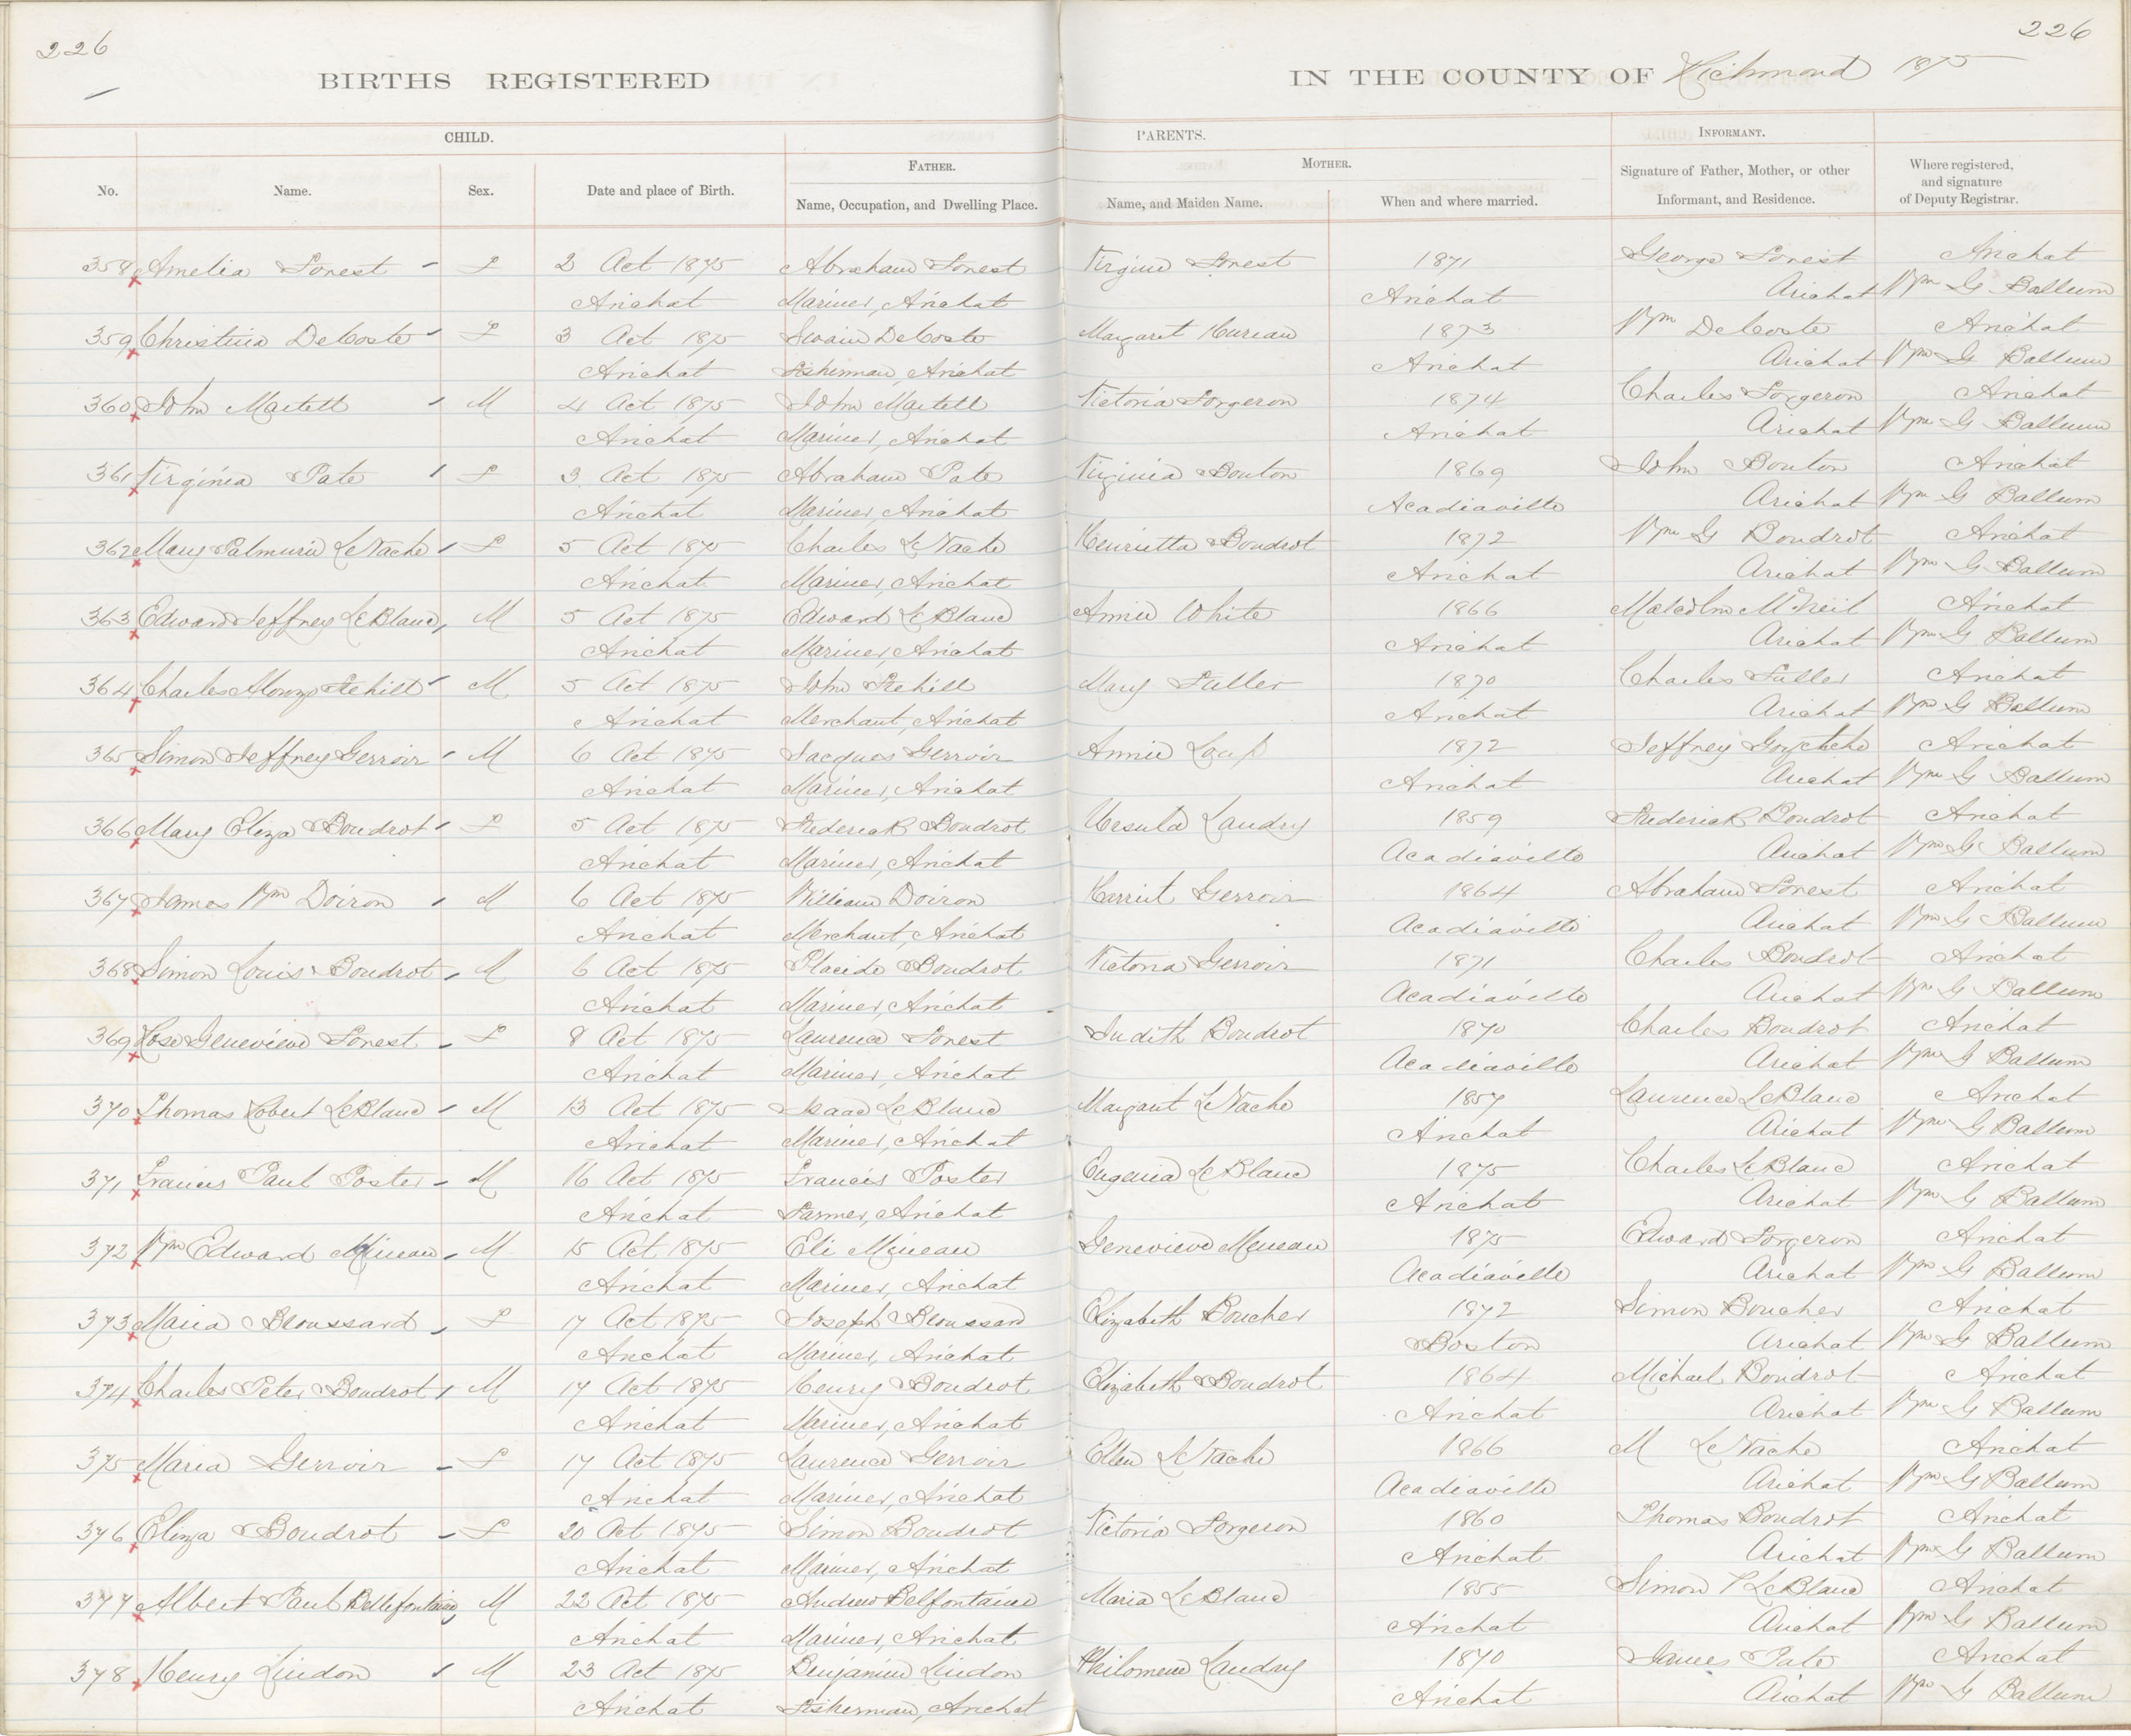 226
226
BIRTHS REGISTERED IN THE COUNTY OF Richmond 1875
CHILD. PARENTS. INFORMANT.
FATHER. MOTHER.
No. Name. Sex. Date and place of Birth. Name, Occupation, and Dwelling Place. Name, and Maiden Name. When and where married. Signature of Father, Mother, or other Informant, and Residence. Where registered, and signature of Deputy Registrar.
358 Amelia Forest F 2 Oct 1875 Abraham Forest Virginie Forest 1871 George Forest Arichat
Arichat Mariner, Arichat Arichat Arichat Wm G Ballum
359 Christina DeCoste F 3 Oct 1875 DeCoste Margaret 1873 Wm DeCoste Arichat
Arichat Fisherman, Arichat Arichat Arichat Wm G Ballum
360 John Martell M 4 Oct 1875 John Martell Victoria Forgeron 1874 Charles Forgeron Arichat
Arichat Mariner, Arichat Arichat Arichat Wm G Ballum
361 Virginia Pate F 3 Oct 1875 Abraham Pate Virginia Bouton 1869 John Bouton Arichat
Arichat Mariner, Arichat Acadiaville Arichat Wm G Ballum
362 Mary LeVache F 5 Oct 1875 Charles LeVache Henrietta Boudrot 1872 Wm G Boudrot Arichat
Arichat Mariner, Arichat Arichat Arichat Wm G Ballum
363 Edward Jeffrey LeBlanc M 5 Oct 1875 Edward LeBlanc Annie White 1866 Malcolm McNeil Arichat
Arichat Mariner, Arichat Arichat Arichat Wm G Ballum
364 Charles Alonzo M 5 Oct 1875 John Mary Fuller 1870 Charles Fuller Arichat
Arichat Merchant, Arichat Arichat Arichat Wm G Ballum
365 Simon Jeffrey Gerroir M 6 Oct 1875 Jacques Gerroir Annie 1872 Jeffrey Arichat
Arichat Mariner, Arichat Arichat Arichat Wm G Ballum
366 Mary Eliza Boudrot F 5 Oct 1875 Frederick Boudrot Ursula Landry 1859 Frederick Boudrot Arichat
Arichat Mariner, Arichat Acadiaville Arichat Wm G Ballum
367 James Wm Doiron M 6 Oct 1875 William Doiron Harriet Gerroir 1864 Abraham Forest Arichat
Arichat Merchant, Arichat Acadiaville Arichat Wm G Ballum
368 Simon Louis Boudrot M 6 Oct 1875 Placide Boudrot Victoria Gerroir 1871 Charles Boudrot Arichat
Arichat Mariner, Arichat Acadiaville Arichat Wm G Ballum
369 Rose Genevieve Forest F 8 Oct 1875 Laurence Forest Judith Boudrot 1870 Charles Boudrot Arichat
Arichat Mariner, Arichat Acadiaville Arichat Wm G Ballum
370 Thomas Robert LeBlanc M 13 Oct 1875 Isaac LeBlanc Margaret LeVache 1857 Laurence LeBlanc Arichat
Arichat Mariner, Arichat Arichat Arichat Wm G Ballum
371 Francis Paul Poster M 16 Oct 1875 Francis Poster Eugenia LeBlanc 1875 Charles LeBlanc Arichat
Arichat Farmer, Arichat Arichat Arichat Wm G Ballum
372 Wm Edward M 15 Oct 1875 Eli Genevieve 1875 Edward Forgeron Arichat
Arichat Mariner, Arichat Acadiaville Arichat Wm G Ballum
373 Maria Broussard F 17 Oct 1875 Joseph Broussard Elizabeth Boucher 1872 Simon Boucher Arichat
Arichat Mariner, Arichat Boston Arichat Wm G Ballum
374 Charles Peter Boudrot M 17 Oct 1875 Henry Boudrot Elizabeth Boudrot 1864 Michael Boudrot Arichat
Arichat Mariner, Arichat Arichat Arichat Wm G Ballum
375 Maria Gerroir F 17 Oct 1875 Laurence Gerroir Ellen LeVache 1866 M LeVache Arichat
Arichat Mariner, Arichat Acadiaville Arichat Wm G Ballum
376 Eliza Boudrot F 20 Oct 1875 Simon Boudrot Victoria Forgeron 1860 Thomas Boudrot Arichat
Arichat Mariner, Arichat Arichat Arichat Wm G Ballum
377 Albert Paul Bellefontaine M 22 Oct 1875 Andrew Belfontaine Maria LeBlanc 1855 Simon P LeBlanc Arichat
Arichat Mariner, Arichat Arichat Arichat Wm G Ballum
378 Henry Lindon M 23 Oct 1875 Benjamin Lindon Philomene Landry 1870 James Pate Arichat
Arichat Fisherman, Arichat Arichat Arichat Wm G Ballum